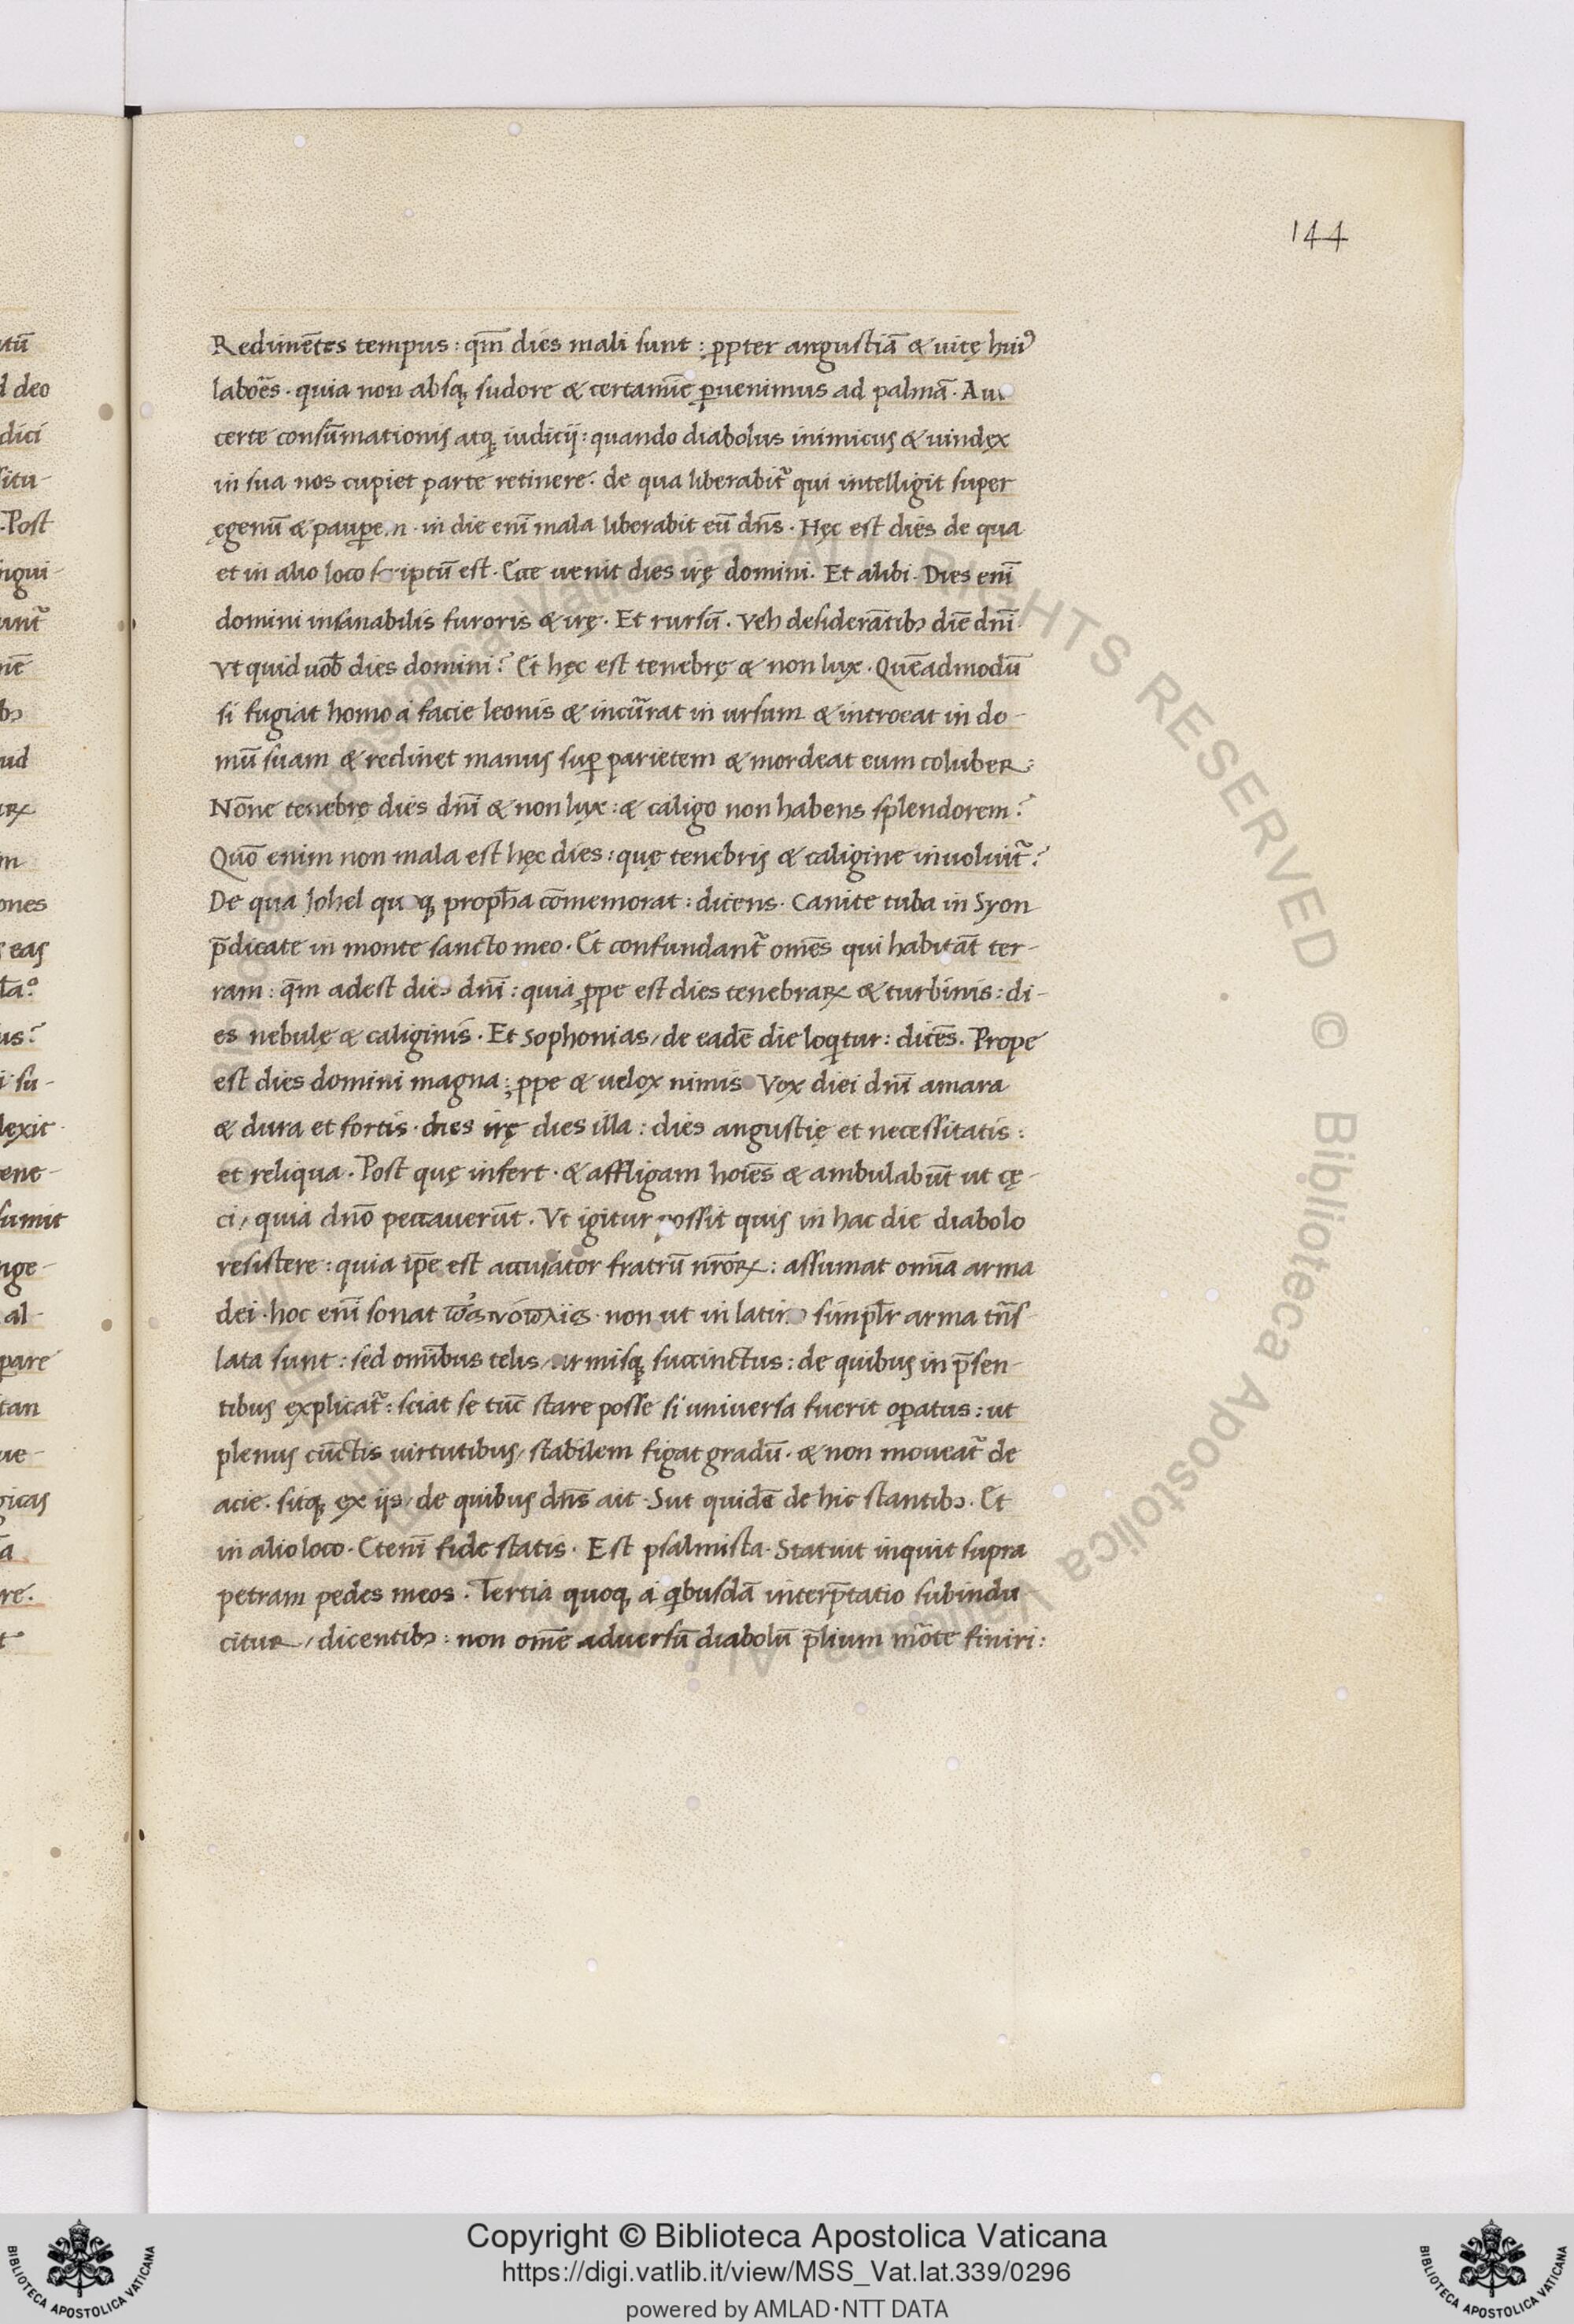 144
Redimētes tempus: qm̄ dies mali sunt: ꝓpter angustiā & uitę huiꝰ
laboēs. quia non absqꝫ sudore & certamīe ꝑuenimus ad palmā.
certe consūmationis atqꝫ iudicij: quando diabolus inimicus & uindex
in sua nos cupiet parte retinere. de qua liberabit᷑ qui intelligit super
egenū & pauꝑem. in die enī mala liberabit eū dn̄s. Hęc est dies de qua
et in alio loco scriptū est. Ecce uenit dies irę domini. Et alibi. Dies enī
domini insanabilis furoris & irę. Et rursū. Veh desiderātibꝫ diē dnī
Vt quid uob̄ dies domini? Et hęc est tenebrę & non lux. Quēadmodū
si fugiat homo a facie leonis & incūrat in ursum & introeat in do-
mū suam & reclinet manus suꝑ parietem & mordeat eum coluber:
Nōne tenebrę dies dnī & non lux: & caligo non habens splendorem?
Quō enim non mala est hęc dies: quę tenebris & caligine inuoluit᷑?
De qua Johel quoqꝫ propħa cōmemorat: dicens. Canite tuba in Syon
p̄dicate in monte sancto meo. Et confundant᷑ omēs qui habitāt ter-
ram: qm̄ adest dies dnī: quia ꝓpe est dies tenebraꝝ & turbinis: di-
es nebulę & caliginis. Et Sophonias, de eadē die loqtur: dicēs. Prope
est dies domini magna: ꝓpe & uelox nimis Vox diei dnī amara
& dura et fortis. dies irę dies illa: dies angustię et necessitatis:
et reliqua. Post quę infert. & affligam hoīes & ambulabūt ut cę-
ci, quia dn̄o peccauerūt. Vt igitur possit quis in hac die diabolo
resistere: quia ip̄e est accusator fratrū nr̄oꝝ: assumat omīa arma
dei. hoc enī sonat non ut in latino simpl̄r arma trn̄s-
lata sunt: sed omībus telis armisqꝫ succinctus: de quibus in p̄sen-
tibus explicat᷑: sciat se tūc stare posse si uniuersa fuerit oꝑatus: ut
plenus cūctis uirtutibus, stabilem figat gradū. & non moueat᷑ de
acie. sitqꝫ ex ijs, de quibus dn̄s ait. Sūt quidē de hic stantibꝫ. Et
in alio loco. Etenī fide statis. Est psalmista. Statuit inquit supra
petram pedes meos. Tertia quoqꝫ a qbusdā interp̄tatio subindu-
citur, dicentibꝫ: non omē aduersū diabolū p̄lium mōte finiri:
Copyright © Biblioteca Apostolica Vaticana
https://digi.vatlib.it/view/MSS_Vat.lat.339/0296
powered by AMLAD·NTT DATA